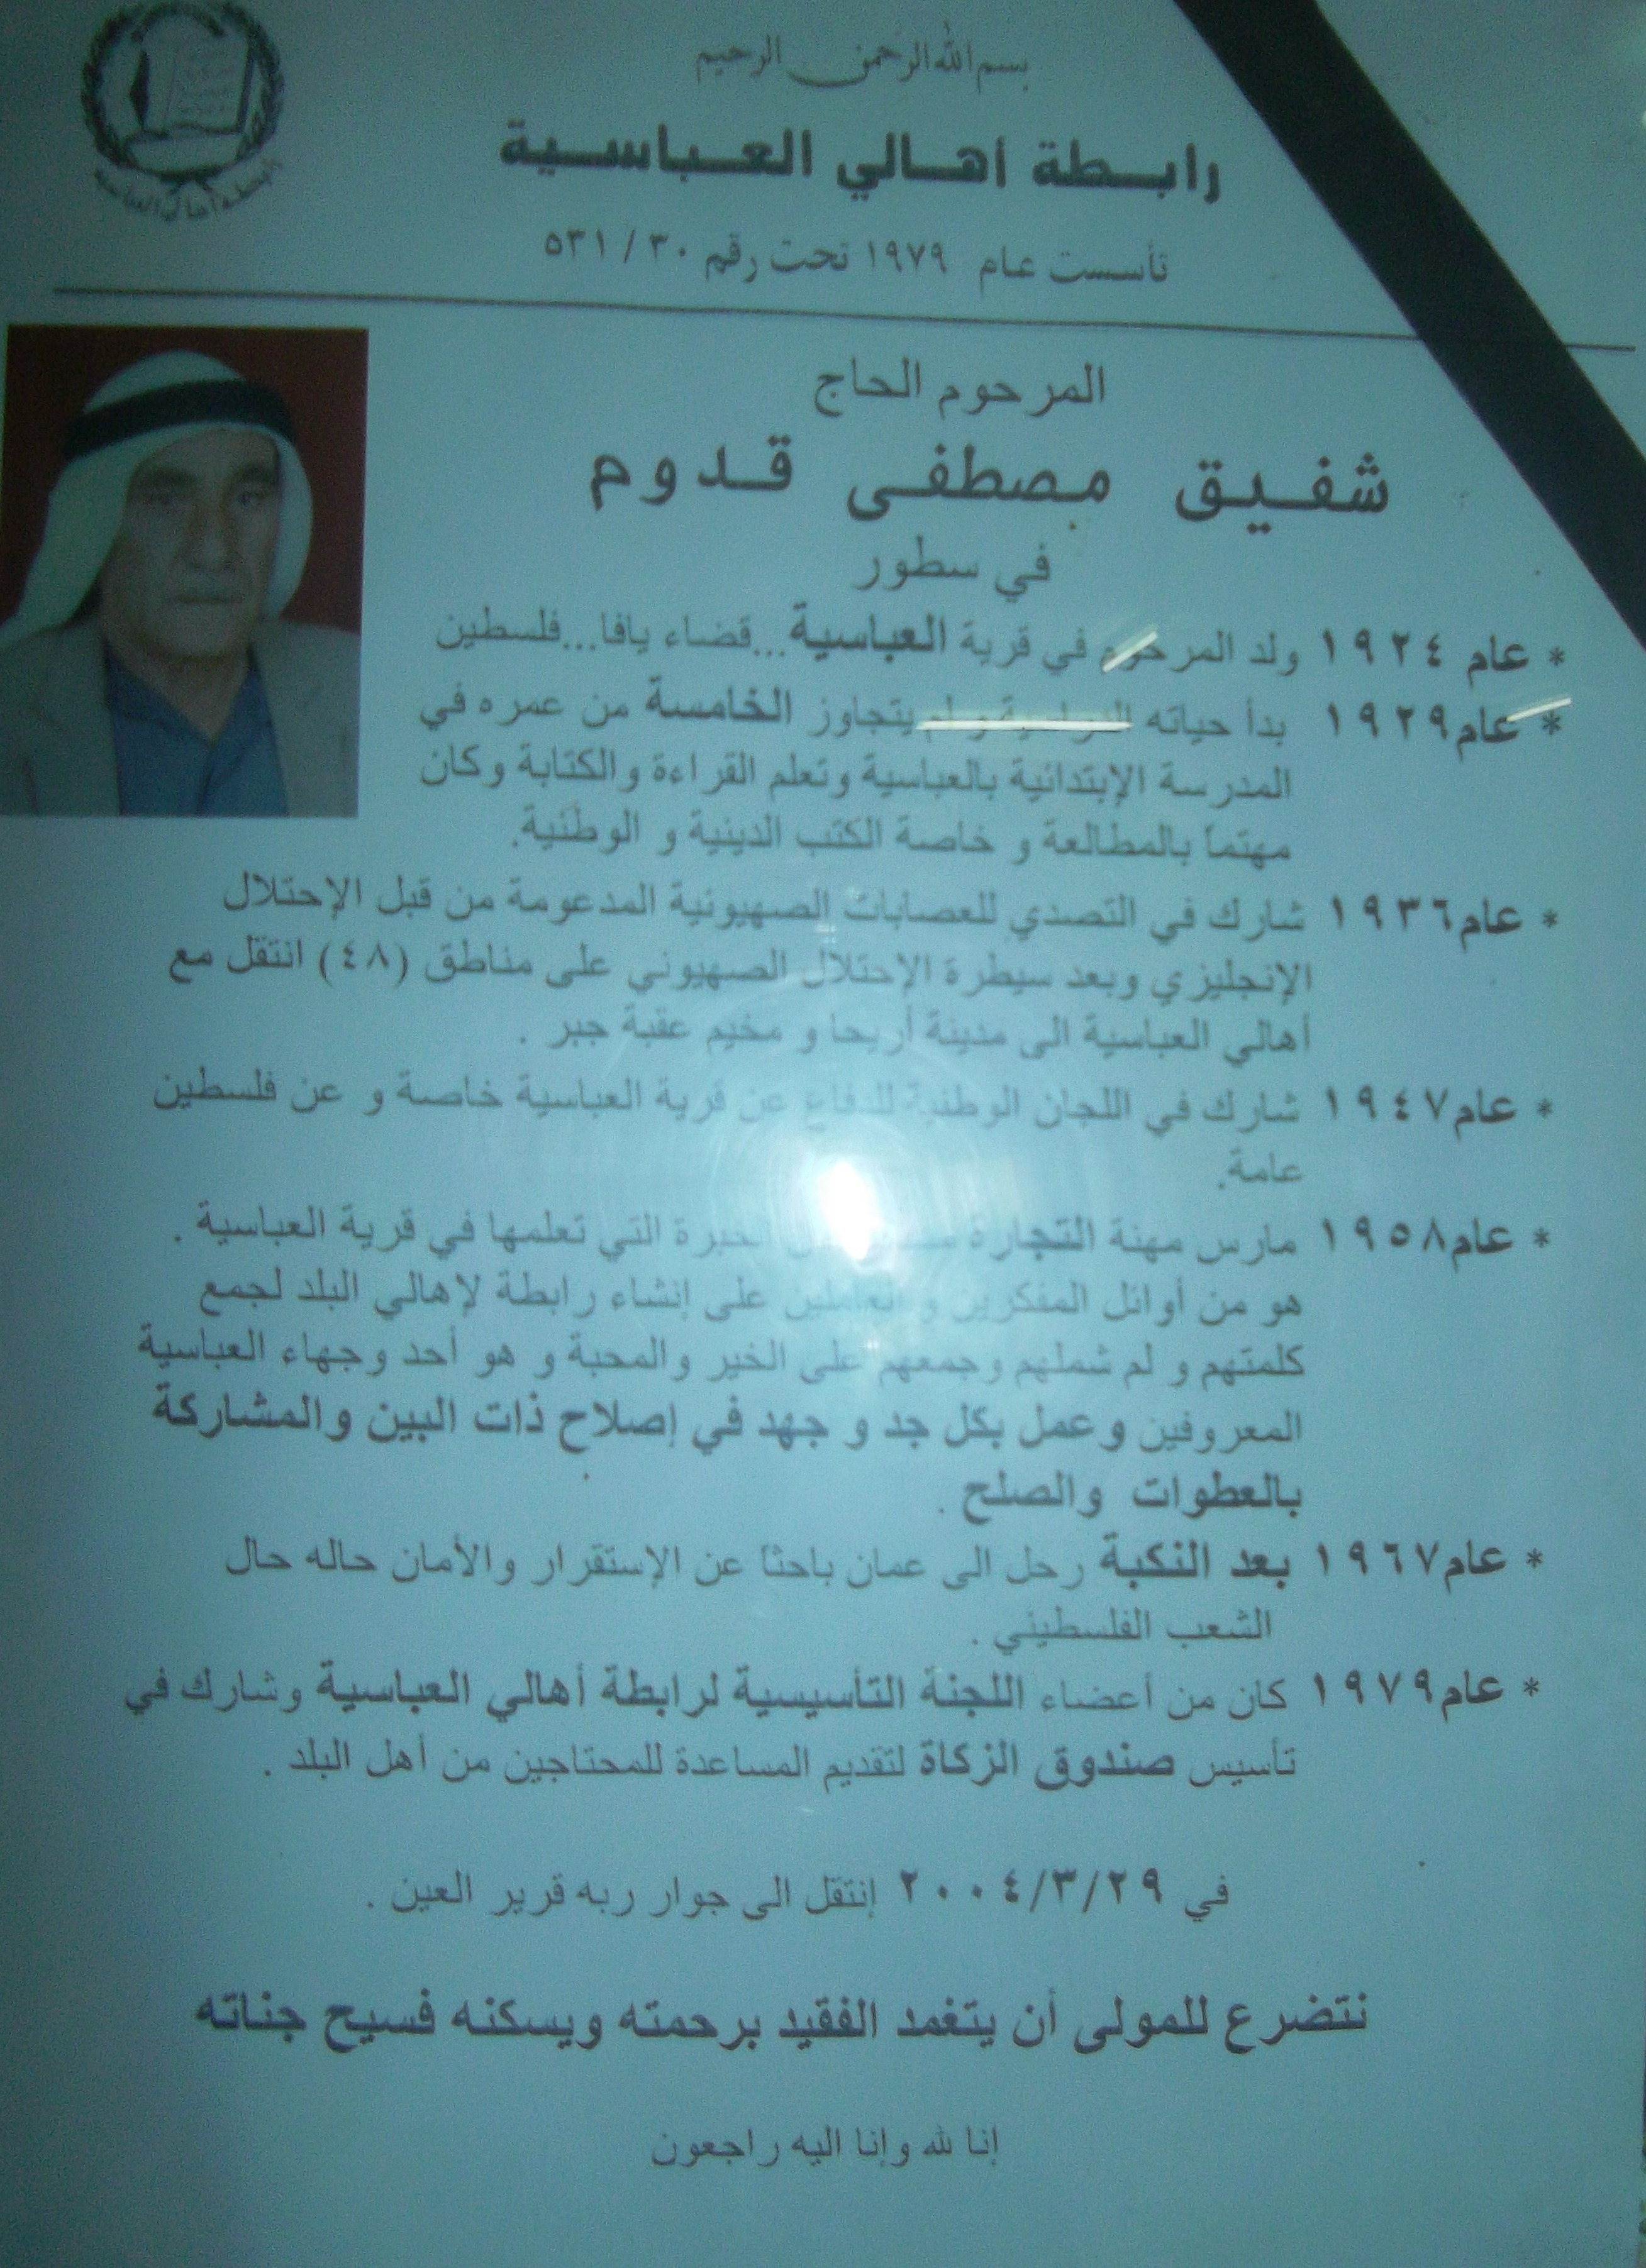 رابطة أهالي العباسية
بسم الله الرحمن الرحيم
رابـطة اهـالي العـباسـية
تأسست عام ١٩٧٩ تحت رقم ٣٠ / ٥٣١
المرحوم الحاج
شفـيـق مصطفـى قـدوم
في سطور
* عام ١٩٢٤ ولد المرحوم في قرية العباسية...قضاء يافا...فلسطين
* عام١٩٢٩ بدأ حياته الدراسية ولم يتجاوز الخامسة من عمره في
المدرسة الإبتدائية بالعباسية وتعلم القراءة والكتابة وكان
مهتماً بالمطالعة و خاصة الكتب الدينية و الوطنية.
* عام١٩٣٦ شارك في التصدي للعصابات الصهيونية المدعومة من قبل الإحتلال
الإنجليزي وبعد سيطرة الإحتلال الصهيوني على مناطق (٤٨) انتقل مع
أهالي العباسية الى مدينة أريحا و مخيم عقبة جبر .
* عام١٩٤٧ شارك في اللجان الوطنية للدفاع عن قرية العباسية خاصة و عن فلسطين
عامة.
* عام١٩٥٨ مارس مهنة التجارة الخبرة التي تعلمها في قرية العباسية .
هو من أوائل المفكرين و العاملين على إنشاء رابطة لإهالي البلد لجمع
كلمتهم و لم شملهم وجمعهم على الخير والمحبة و هو أحد وجهاء العباسية
المعروفين وعمل بكل جد و جهد في إصلاح ذات البين والمشاركة
بالعطوات والصلح .
* عام١٩٦٧ بعد النكبة رحل الى عمان باحثا عن الإستقرار والأمان حاله حال
الشعب الفلسطيني .
* عام١٩٧٩ كان من أعضاء اللجنة التأسيسية لرابطة أهالي العباسية وشارك في
تأسيس صندوق الزكاة لتقديم المساعدة للمحتاجين من أهل البلد .
في ٢٠٠٤/٣/٢٩ إنتقل الى جوار ربه قرير العين .
نتضرع للمولى أن يتغمد الفقيد برحمته ويسكنه فسيح جناته
إنا لله وإنا اليه راجعون